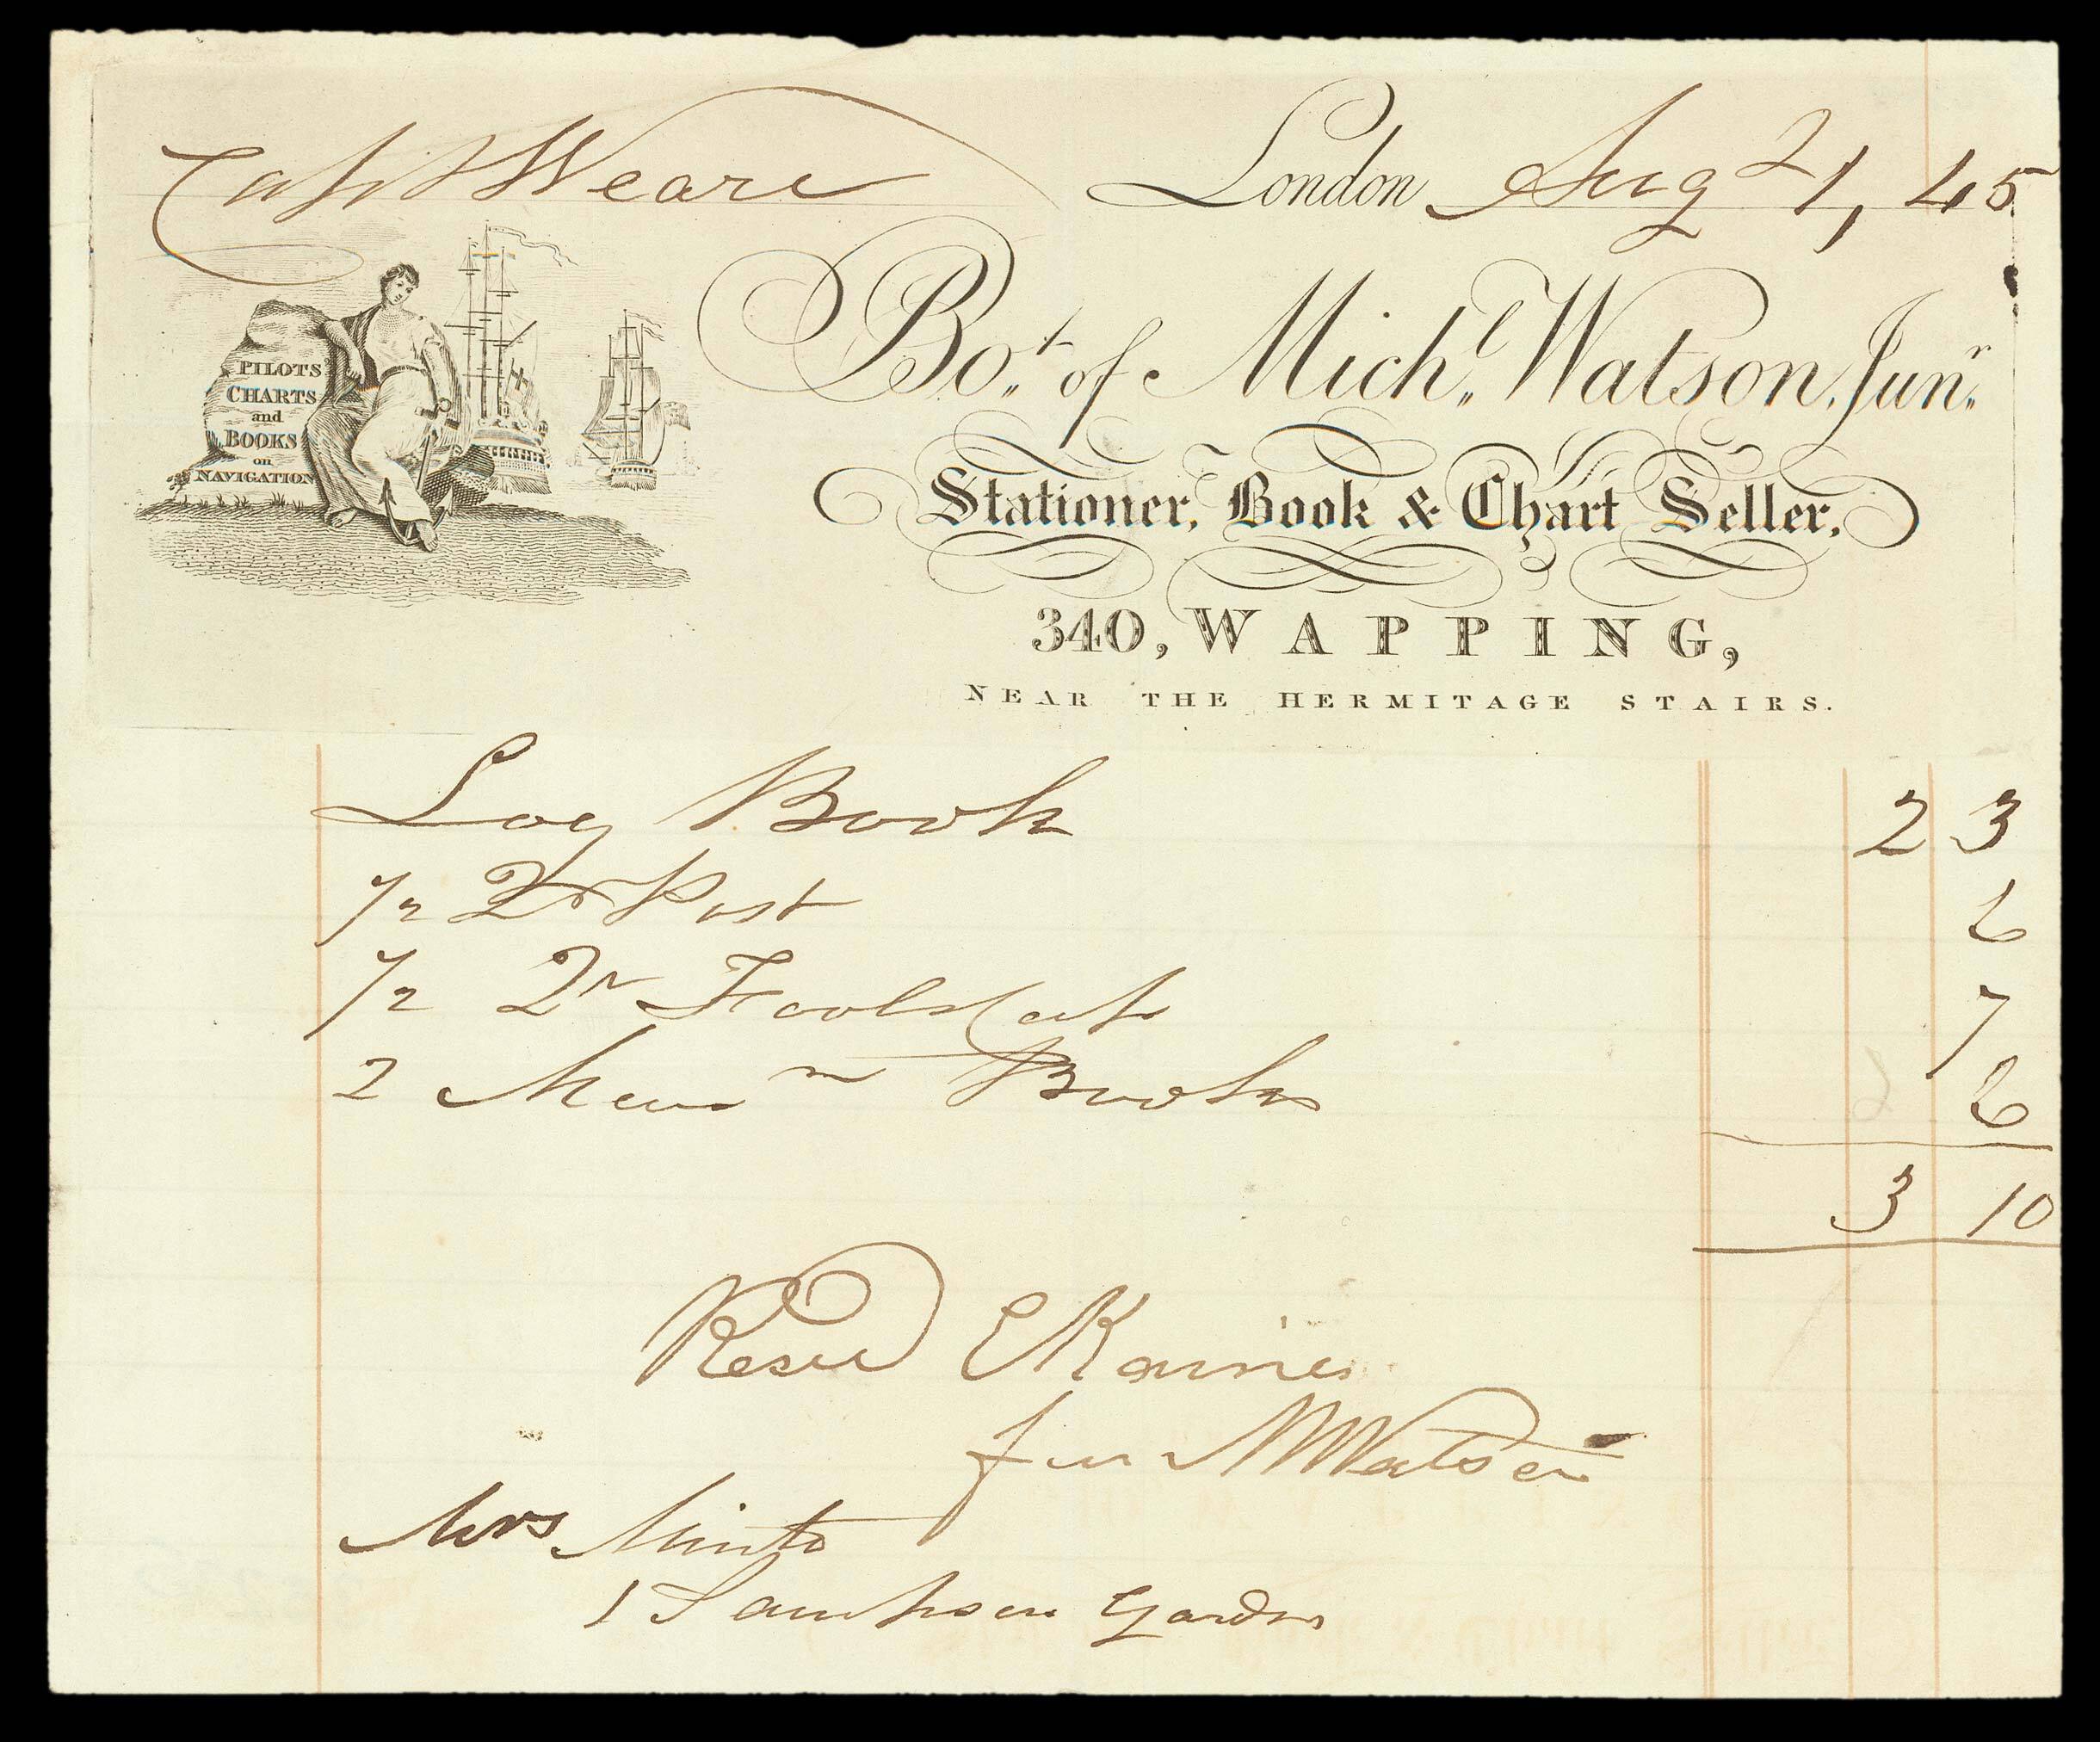 Capt Weare
London Augt 21, 45
PILOTS
CHARTS
and
BOOKS
on
NAVIGATION
Bot. of Michl. Watson, Junr.
Stationer, Book & Chart Seller,
340, WAPPING,
NEAR THE HERMITAGE STAIRS.
Log Book 2 3
1/2 Qr Post 6
1/2 Qr Foolscap 7
2 Memm Books 6
3 10
Recd E
for M Watson
Mrs Minto
1 Sampson Gardns